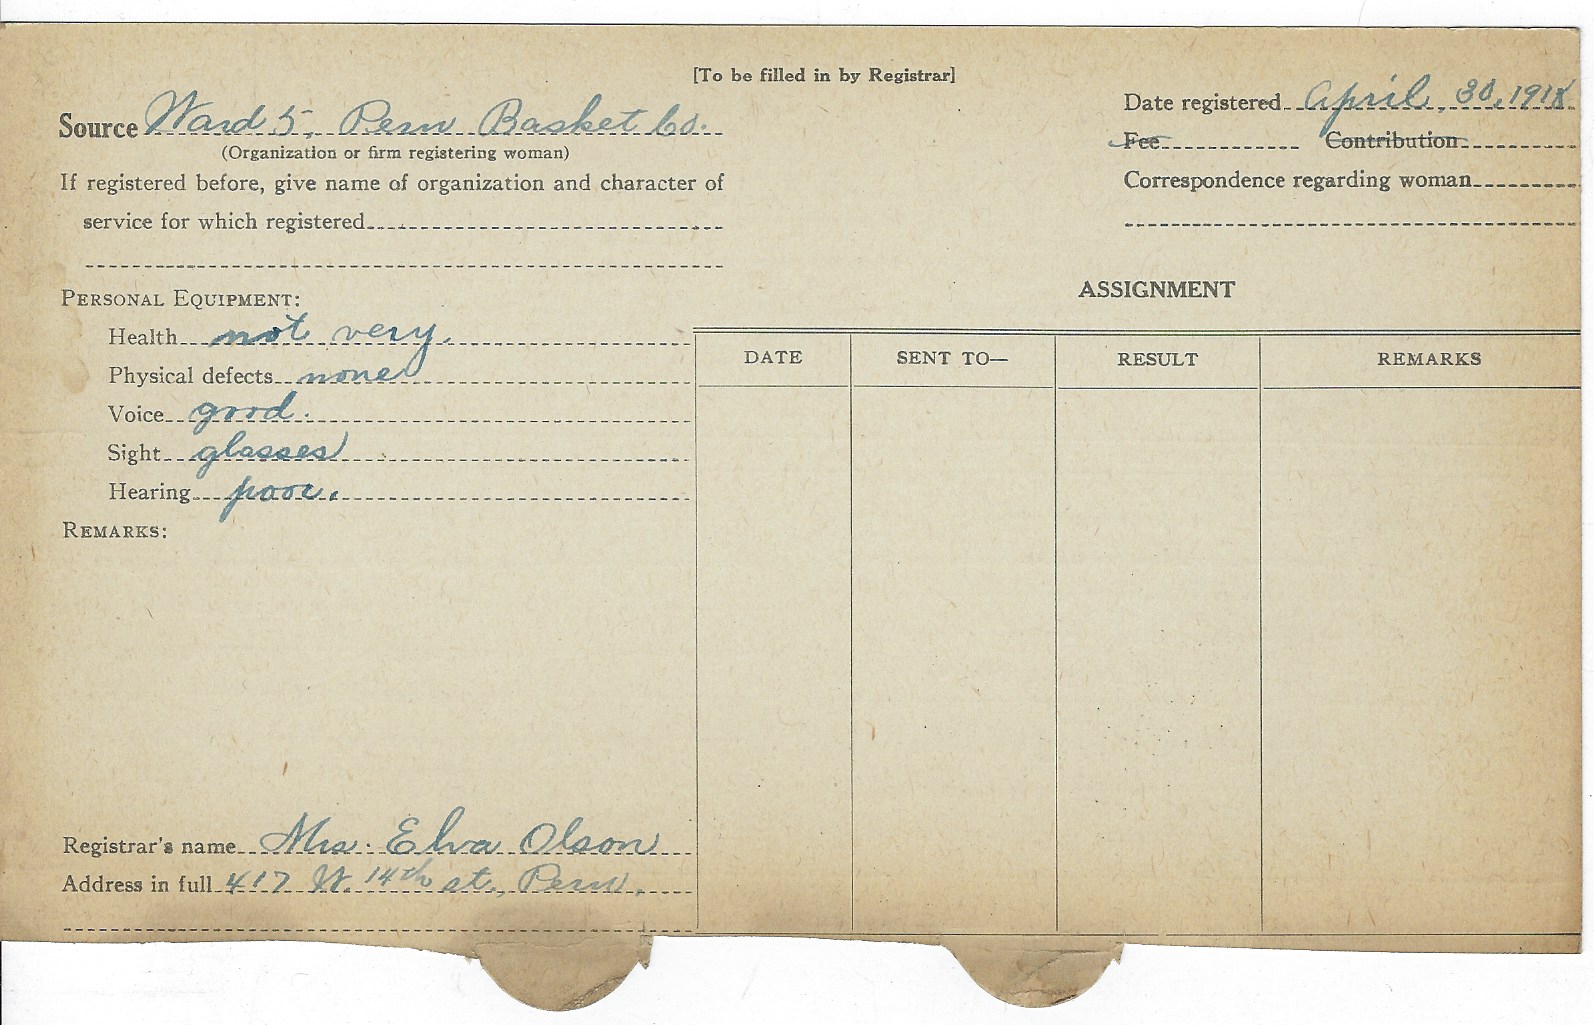 [To be filled in by Registrar]
Source Ward 5, Peru Basket Co.
(Organization or firm registering woman)
If registered before, give name of organization and character of
service for which registered
Date registered April 30, 1918
Fee Contribution
Correspondence regarding woman
PERSONAL EQUIPMENT:
Health not very.
Physical defects none
Voice good.
Sight glasses
Hearing poor.
REMARKS:
ASSIGNMENT
DATE SENT TO— RESULT REMARKS
Registrar's name Mrs. Elva Olson
Address in full 417 W. 14th st., Peru.